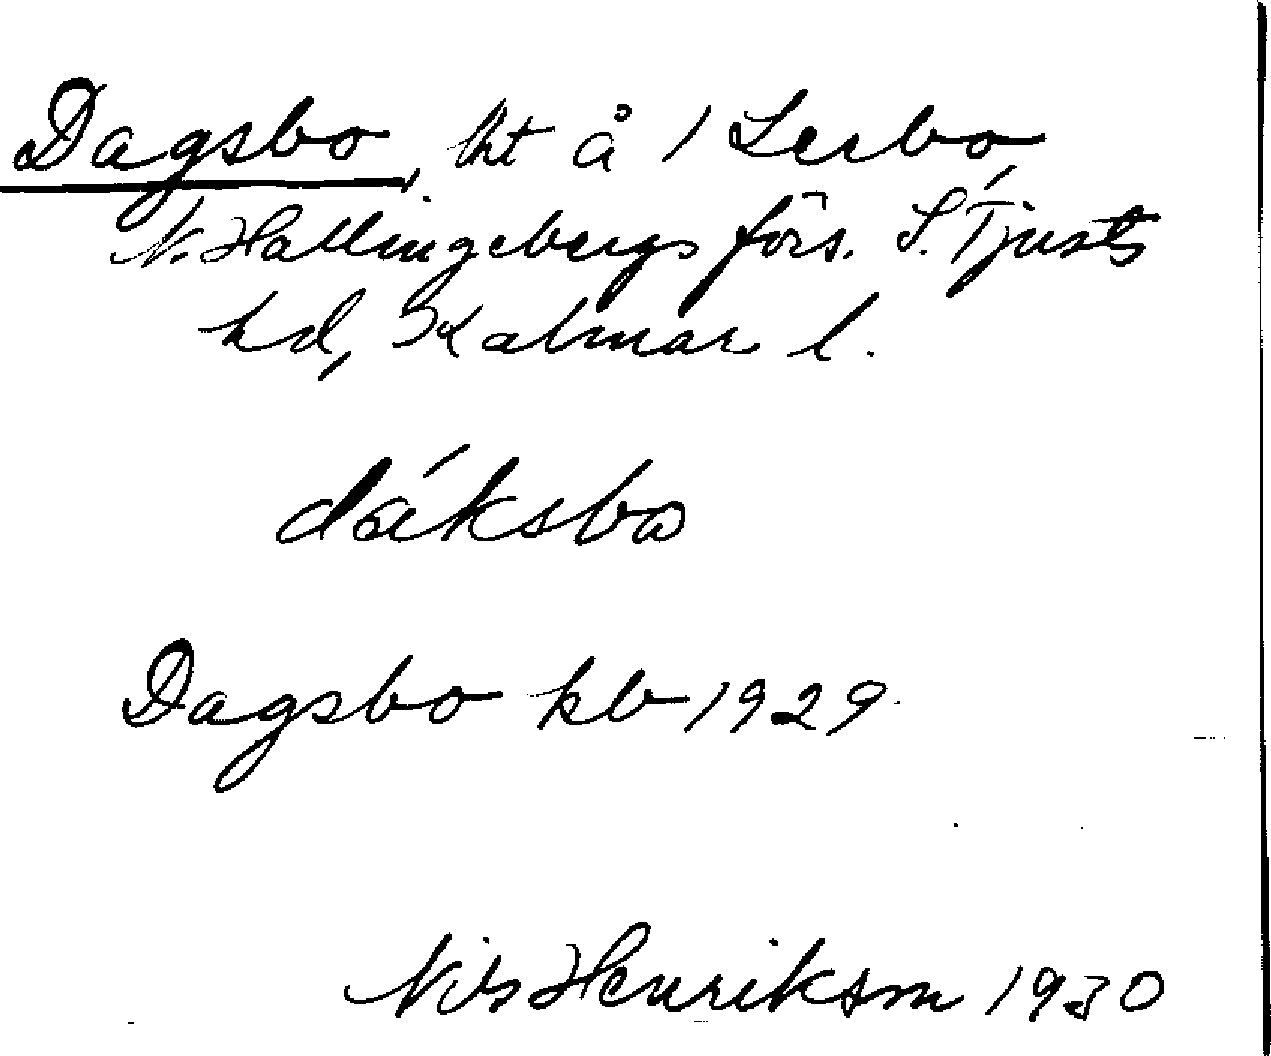 Dagsbo, lht å 1 Lerbo,
N. Hallingebergs förs. S. Tjusts
hd, Kalmar l.
dáksbo
Dagsbo kb 1929
Nils Henrikson 1930